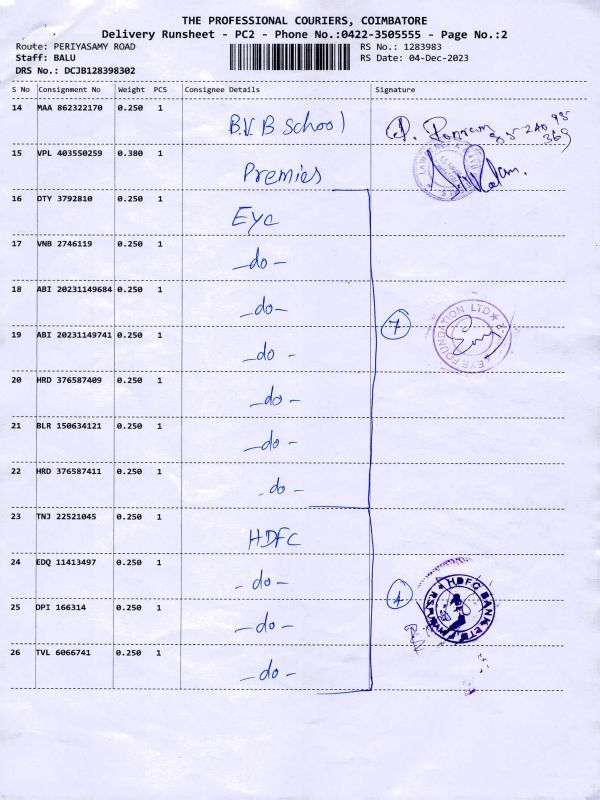 THE PROFESSIONAL COURIERS, COIMBATORE
Delivery Runsheet - PC2 - Phone No.:0422-3505555 - Page No.:2
Route: PERIYASAMY ROAD RS No.: 1283983
Staff: BALU RS Date: 04-Dec-2023
DRS No.: DCJB128398302
S No Consignment No Weight PCS Consignee Details Signature
14 MAA 862322170 0.250 1 B.V.B School
15 VPL 403550259 0.380 1 Premies
16 OTY 3792810 0.250 1 Eye
17 VNB 2746119 0.250 1 -do-
18 ABI 20231149684 0.250 1 -do-
7 EYE FOUNDATION LTD
19 ABI 20231149741 0.250 1 -do-
20 HRD 376587409 0.250 1 -do-
21 BLR 150634121 0.250 1 -do-
22 HRD 376587411 0.250 1 -do-
23 TNJ 22521045 0.250 1 HDFC
24 EDQ 11413497 0.250 1 -do-
4 HDFC BANK LTD
25 DPI 166314 0.250 1 -do-
26 TVL 6066741 0.250 1 -do-